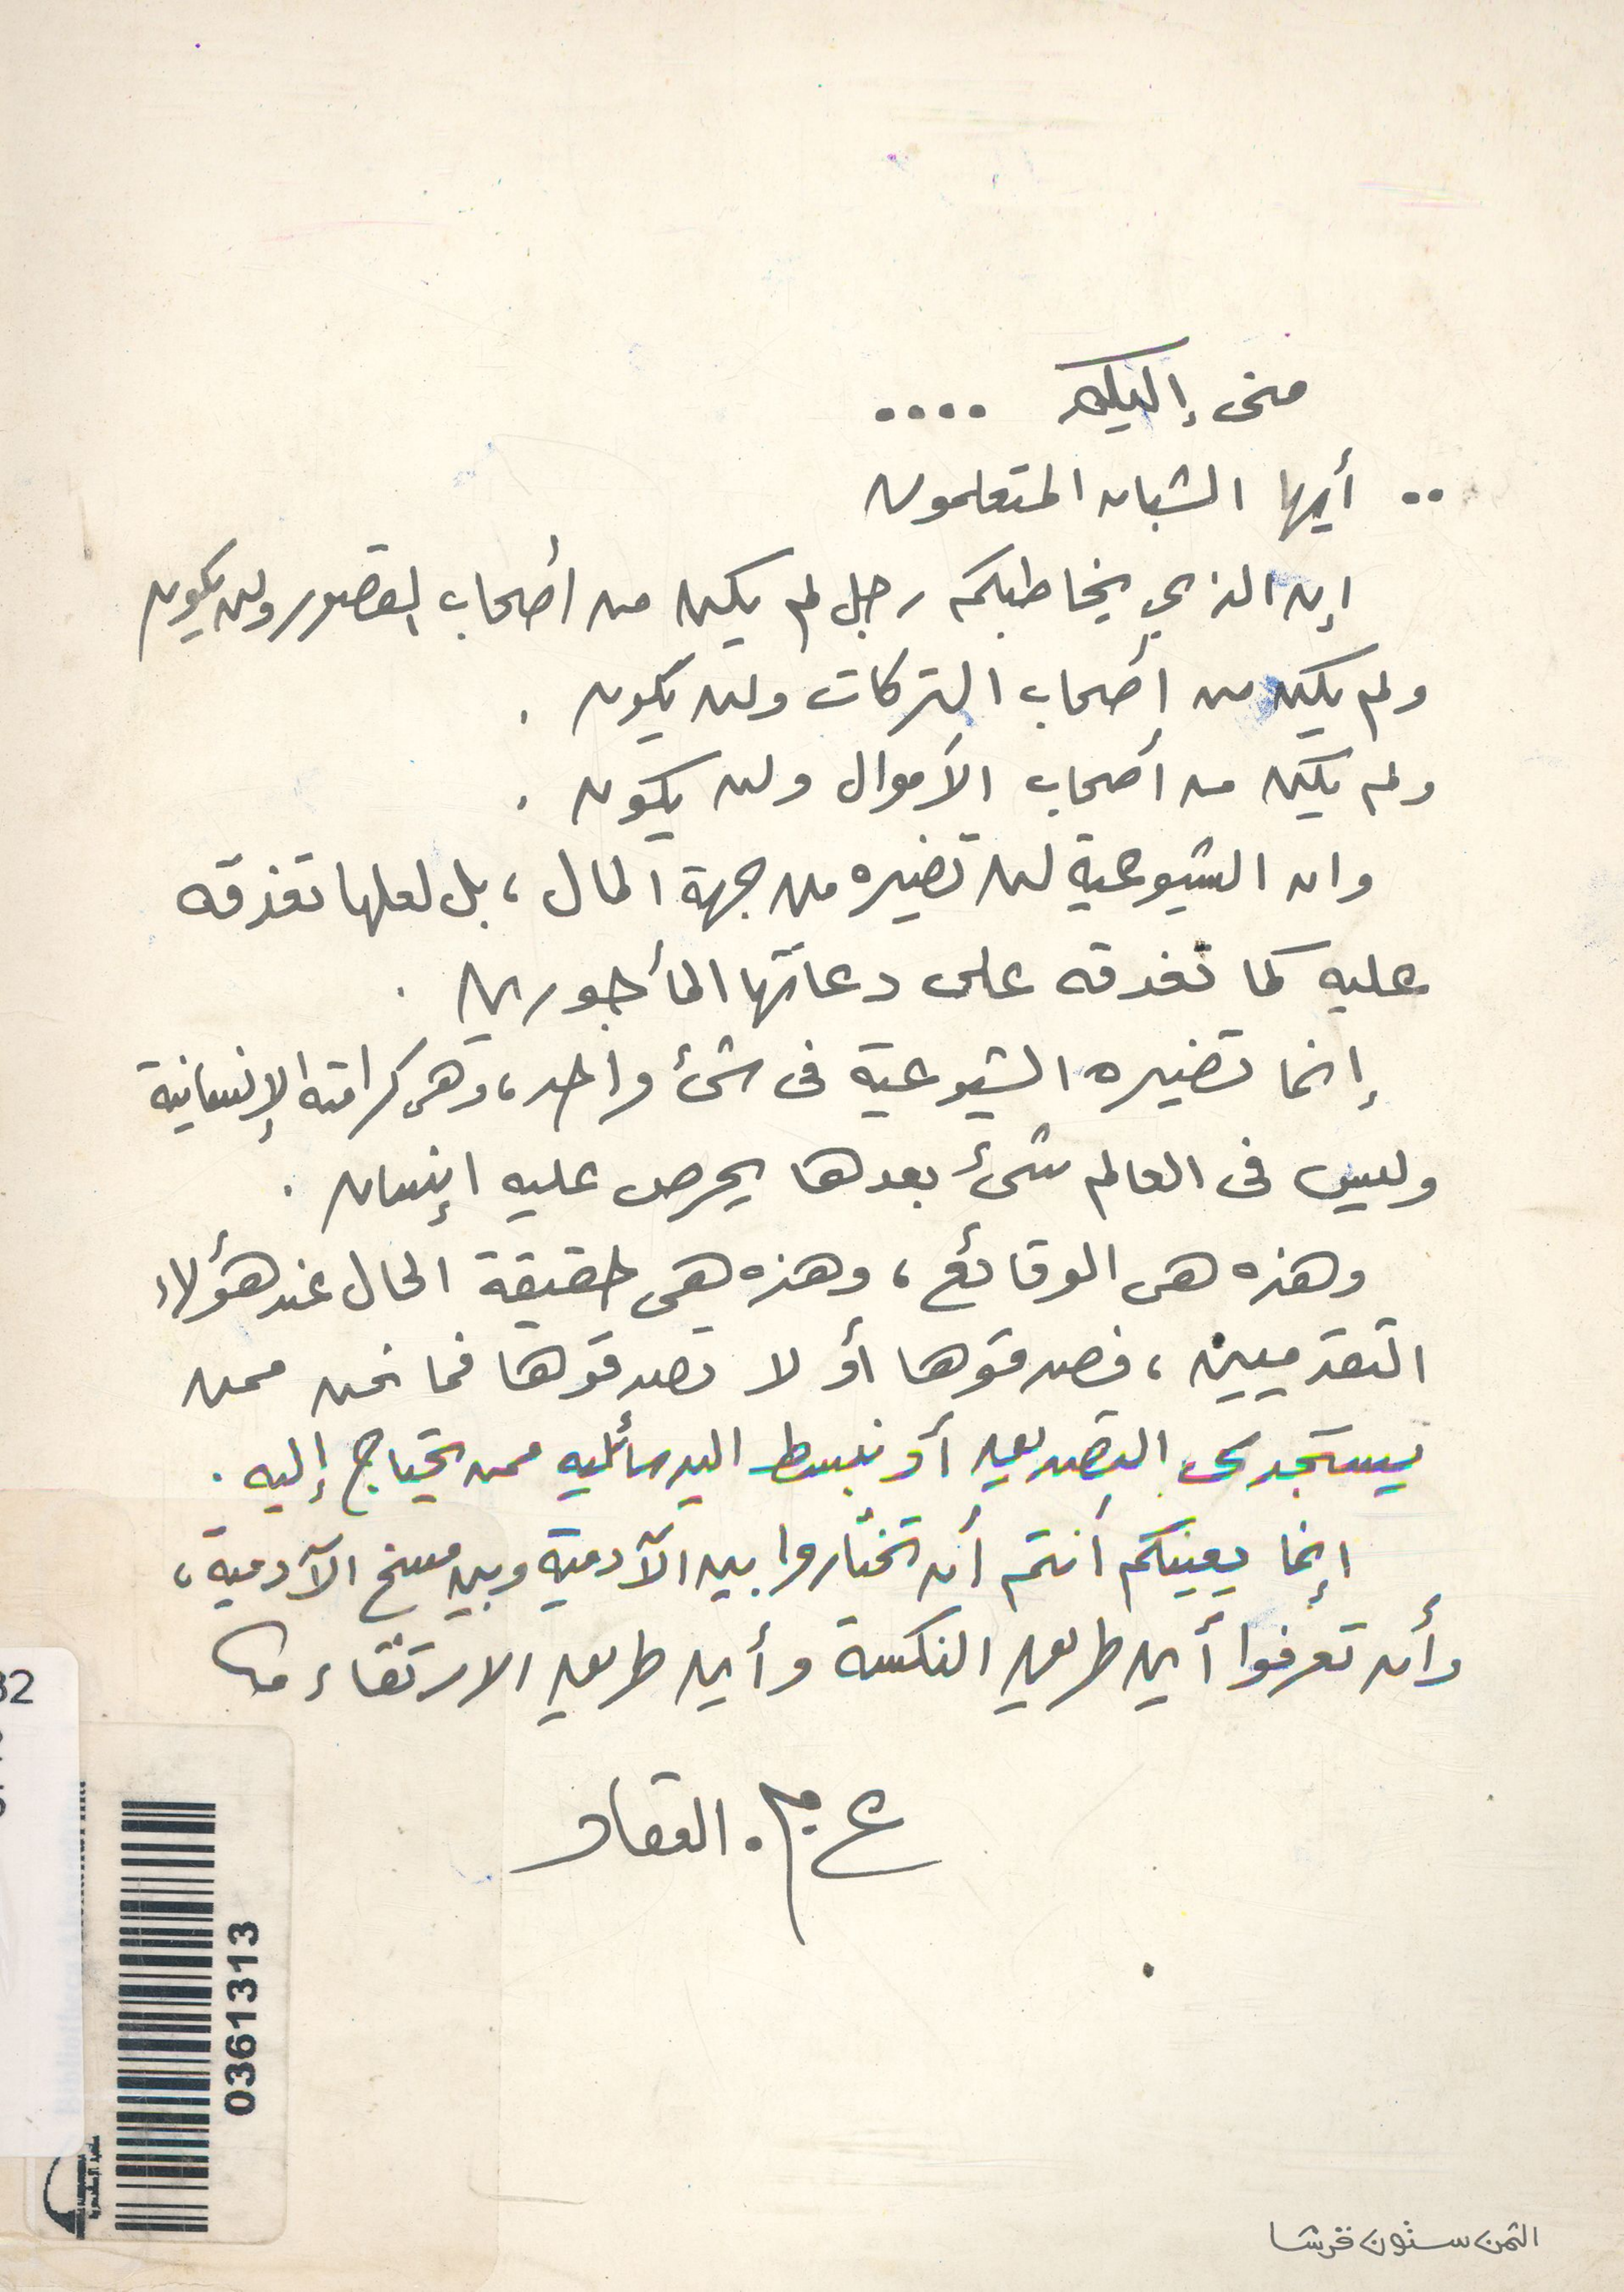 منى إليكم ....
.. أيها الشبان المتعلمون
إن الذي يخاطبكم رجل لم يكن من أصحاب القصور ولن يكون
ولم يكن من أصحاب التركات ولن يكون .
ولم يكن من أصحاب الأموال ولن يكون .
وان الشيوعية لن تضيره من جهة المال ، بل لعلها تغدقه
عليه كما تغدقه على دعاتها المأجورين .
إنما تضيره الشيوعية فى شئ واحد ، وهى كرامته الإنسانية
وليس فى العالم شئ بعدها يحرص عليه إنسان .
وهذه هى الوقائع ، وهذه هى حقيقة الحال عند هؤلاء
التقدميين ، فصدقوها أو لا تصدقوها فما نحن ممن
يستجدى التصديق أو نبسط اليد سائليه ممن يحتاج إليه .
إنما يعينكم أنتم أن تختاروا بين الآدمية وبين مسخ الآدمية ،
وأن تعرفوا أين طريق النكسة وأين طريق الارتقاء
ع . م . العقاد
0361313
82
الثمن ستون قرشا